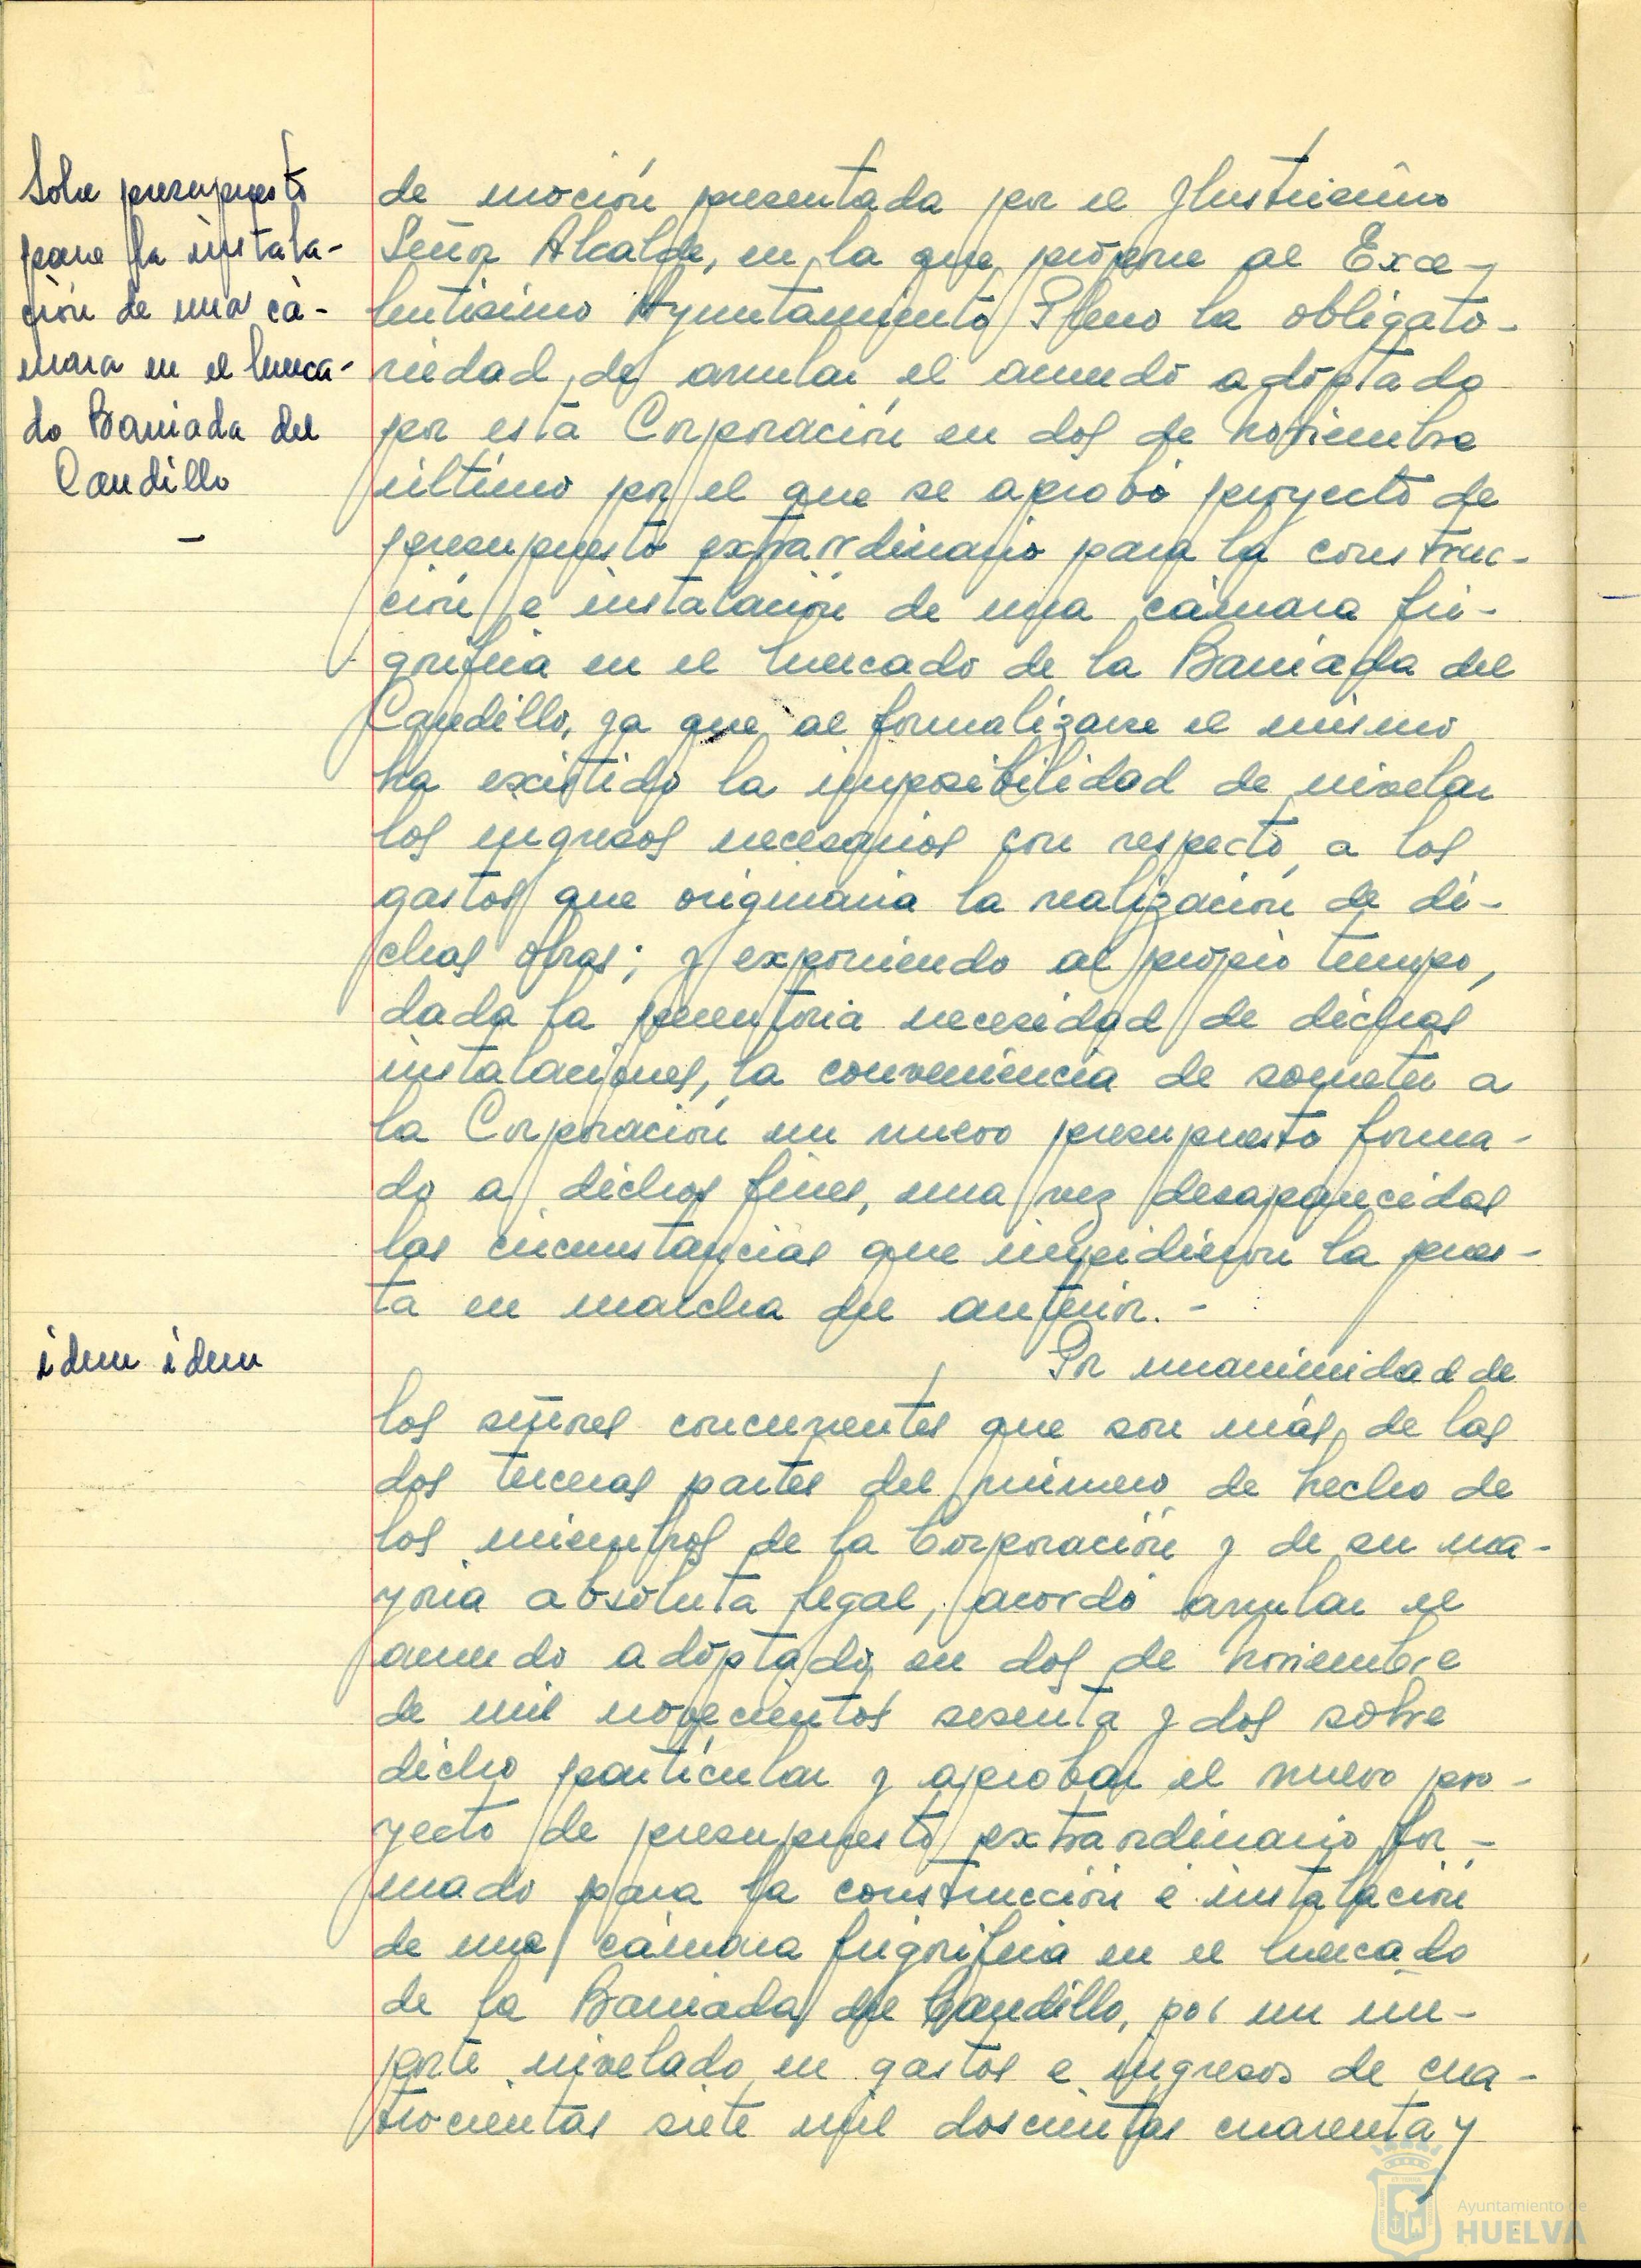 Sobre presupuesto
para la instala-
ción de una cá-
mara en el merca-
do Barriada del
Caudillo
-
de moción presentada por el Ilustrísimo
Señor Alcalde, en la que propone al Exce-
lentísimo Ayuntamiento Pleno la obligato-
riedad de anular el acuerdo adoptado
por esta Corporación en dos de noviembre
último por el que se aprobó proyecto de
presupuesto extraordinario para la construc-
ción e instalación de una cámara fri-
gorífica en el mercado de la Barriada del
Caudillo, ya que al formalizarse el mismo
ha existido la imposibilidad de nivelar
los ingresos necesarios con respecto a los
gastos que originaria la realización de di-
chas obras; y exponiendo al propio tiempo,
dada la perentoria necesidad de dichas
instalaciones, la conveniencia de someter a
la Corporación un nuevo presupuesto forma-
do a dichos fines, una vez desaparecidas
las circunstancias que impidieron la pues-
ta en marcha del anterior. -
idem idem
Por unanimidad de
los señores concurrentes que son más de las
dos terceras partes del número de hecho de
los miembros de la Corporación y de su ma-
yoria absoluta legal, acordó anular el
acuerdo adoptado en dos de noviembre
de mil novecientos sesenta y dos sobre
dicho particular y aprobar el nuevo pro-
yecto de presupuesto extraordinario for-
mado para la construcción e instalación
de una cámara frigorífica en el mercado
de la Barriada del Caudillo, por un im-
porte nivelado en gastos e ingresos de cua-
trocientas siete mil doscientas cuarenta y
Ayuntamiento de
HUELVA